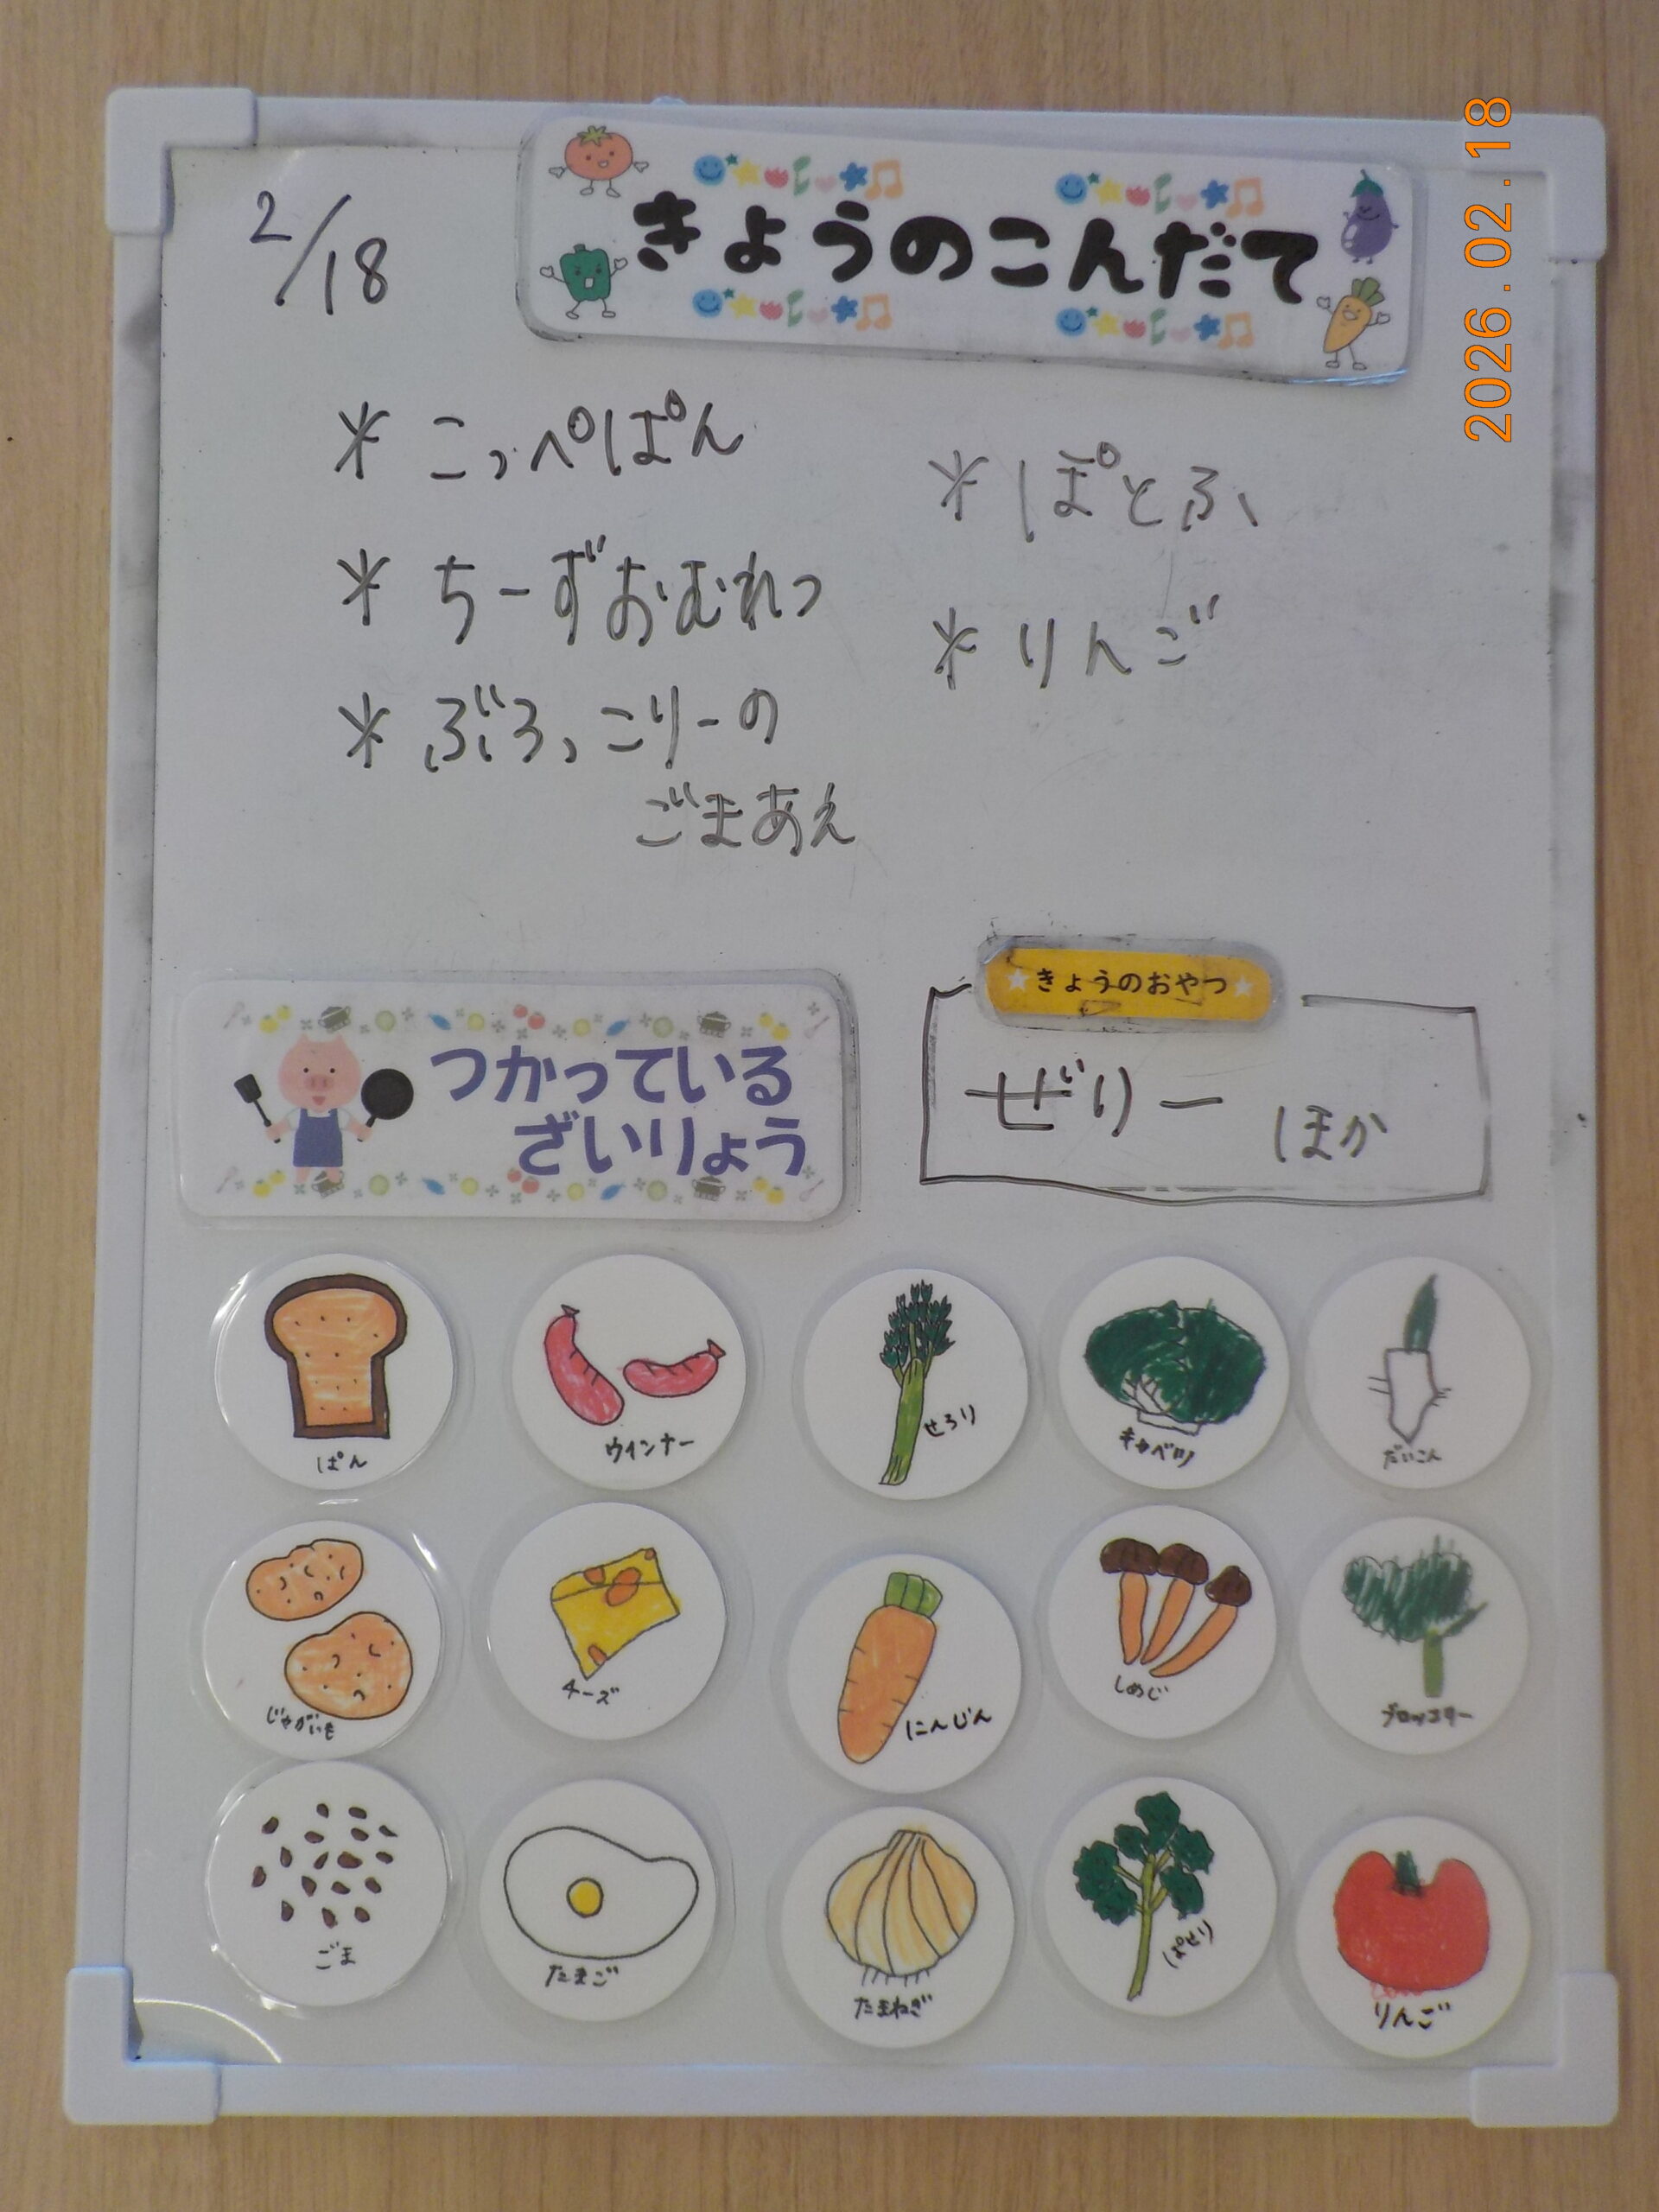 2/18
きょうのこんだて
2026.02.18
* こっぺぱん
* ちーずおむれつ
* ぶろっこりーの
ごまあえ
* ぽとふ
* りんご
きょうのおやつ
ぜりー ほか
つかっている
ざいりょう
ぱん
ウインナー
せろり
キャベツ
だいこん
じゃがいも
チーズ
にんじん
しめじ
ブロッコリー
ごま
たまご
たまねぎ
ぱせり
りんご